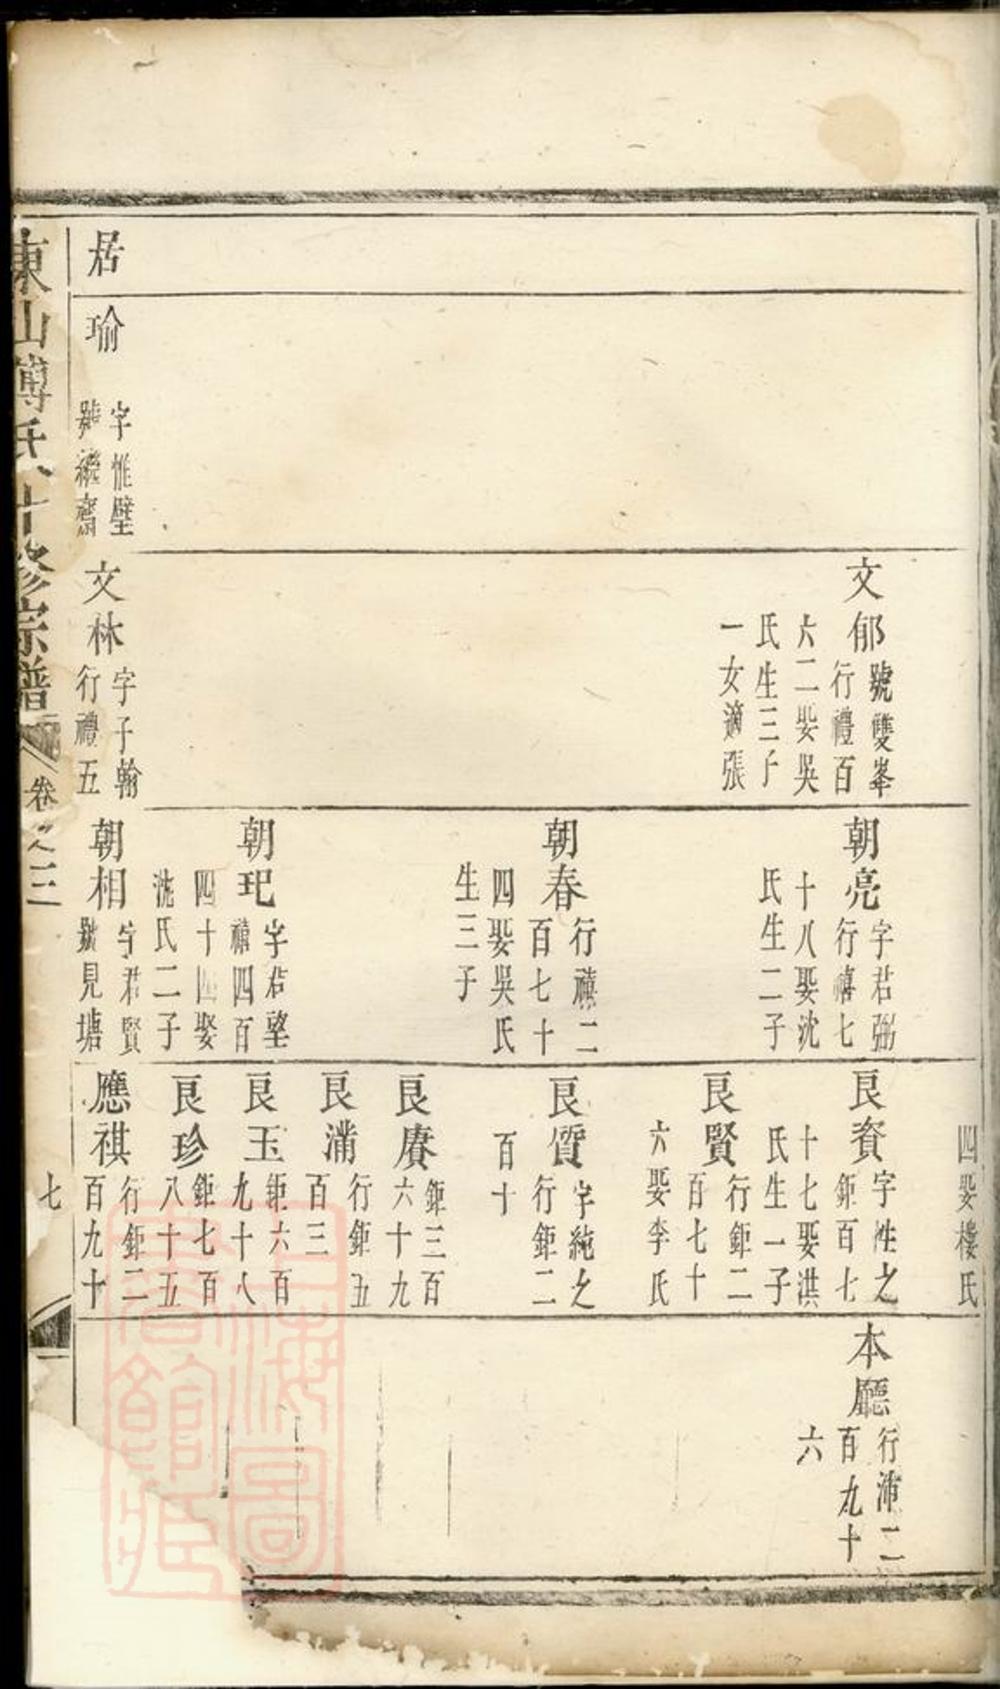 居
瑜
字惟壁
文郁
號雙峯
行禮百
六二娶吳
氏生三子
一女適張
文林
字子翰
行禮五
朝亮
字君弼
行禧七
十八娶沈
氏生二子
朝春
行禧二
百七十
四娶吳氏
生三子
朝玘
字君望
禧四百
四十四娶
沈氏二子
朝相
字君賢
號見塘
四娶樓氏
良資
字性之
鉅百七
十七娶洪
氏生一子
良賢
行鉅二
百七十
六娶李氏
良質
字純之
行鉅二
百十
良賡
鉅三百
六十九
良滿
行鉅五
百三
良玉
鉅六百
九十八
良珍
鉅七百
八十五
應祺
行鉅二
百九十
本廳
行沛二
百九十
六
東山傅氏十修宗譜
卷之三
七
上海圖書館藏